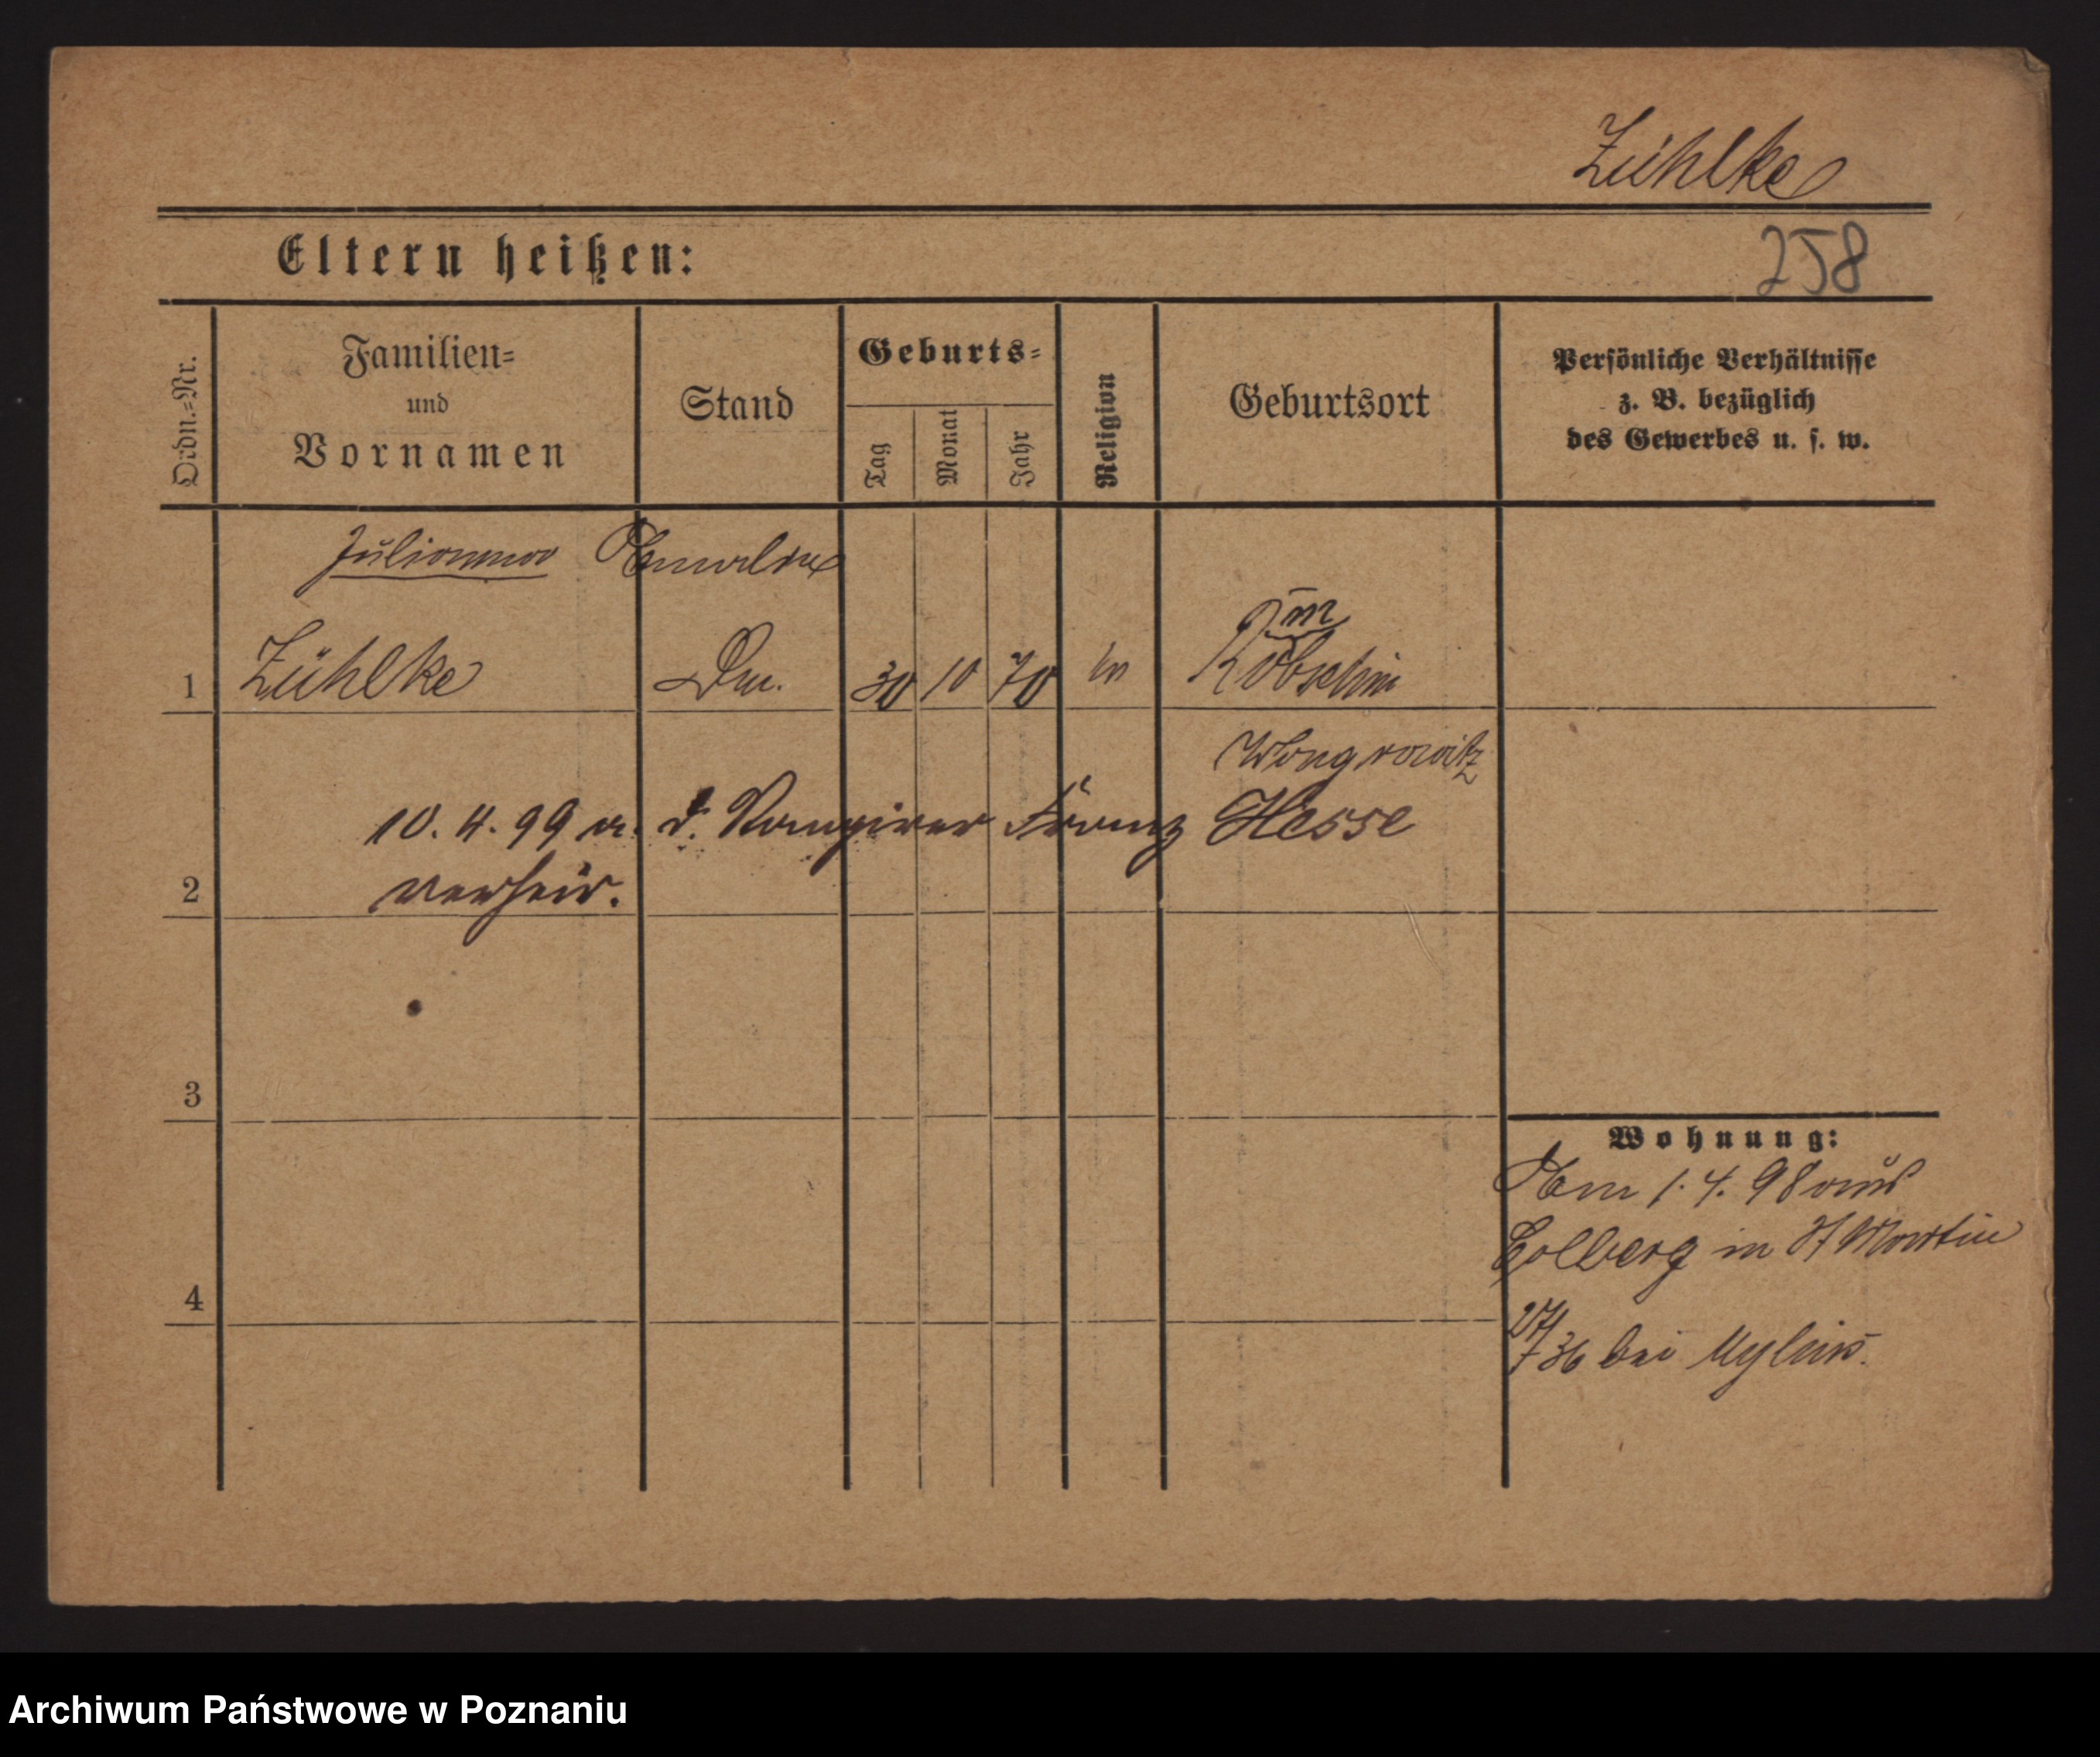 Zühlke
Eltern heißen:
258
Ordn.=Nr.
Familien=
und
Vornamen
Stand
Geburts=
Tag
Monat
Jahr
Religion
Geburtsort
Persönliche Verhältnisse
z. B. bezüglich
des Gewerbes u. s. w.
Julianna Amalie
1 Zühlke 30 10 70
Wongrowitz
10. 4. 99 a. d. Rangirer Franz Hesse
2 verheir.
3
Wohnung:
Am 1. 4. 98 aus
Colberg in St Martin
4
36 bei Mylius.
Archiwum Państwowe w Poznaniu